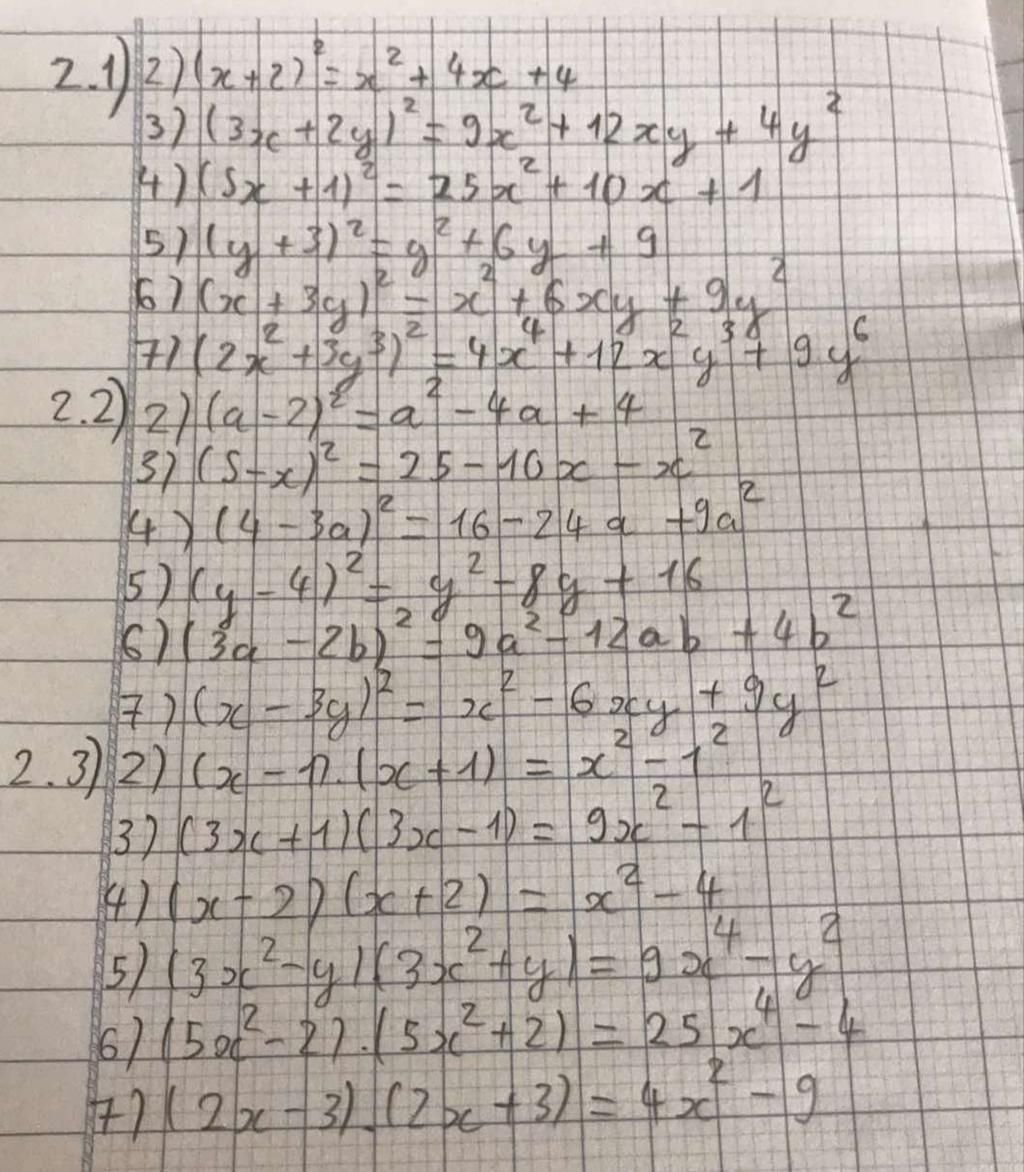 2.1) 2) (x+2)² = x² + 4x + 4
3) (3x + 2y)² = 9x² + 12xy + 4y²
4) (5x + 1)² = 25x² + 10x + 1
5) (y + 3)² = y² + 6y + 9
6) (x + 3y)² = x² + 6xy + 9y²
7) (2x² + 3y³)² = 4x⁴ + 12x²y³ + 9y⁶
2.2) 2) (a - 2)² = a² - 4a + 4
3) (5 - x)² = 25 - 10x - x²
4) (4 - 3a)² = 16 - 24a + 9a²
5) (y - 4)² = y² - 8y + 16
6) (3a - 2b)² = 9a² - 12ab + 4b²
7) (x - 3y)² = x² - 6xy + 9y²
2.3) 2) (x - 1).(x + 1) = x² - 1²
3) (3x + 1)(3x - 1) = 9x² - 1²
4) (x - 2) (x + 2) = x² - 4
5) (3x² - y)(3x² + y) = 9x⁴ - y²
6) (5x² - 2).(5x² + 2) = 25x⁴ - 4
7) (2x - 3).(2x + 3) = 4x² - 9